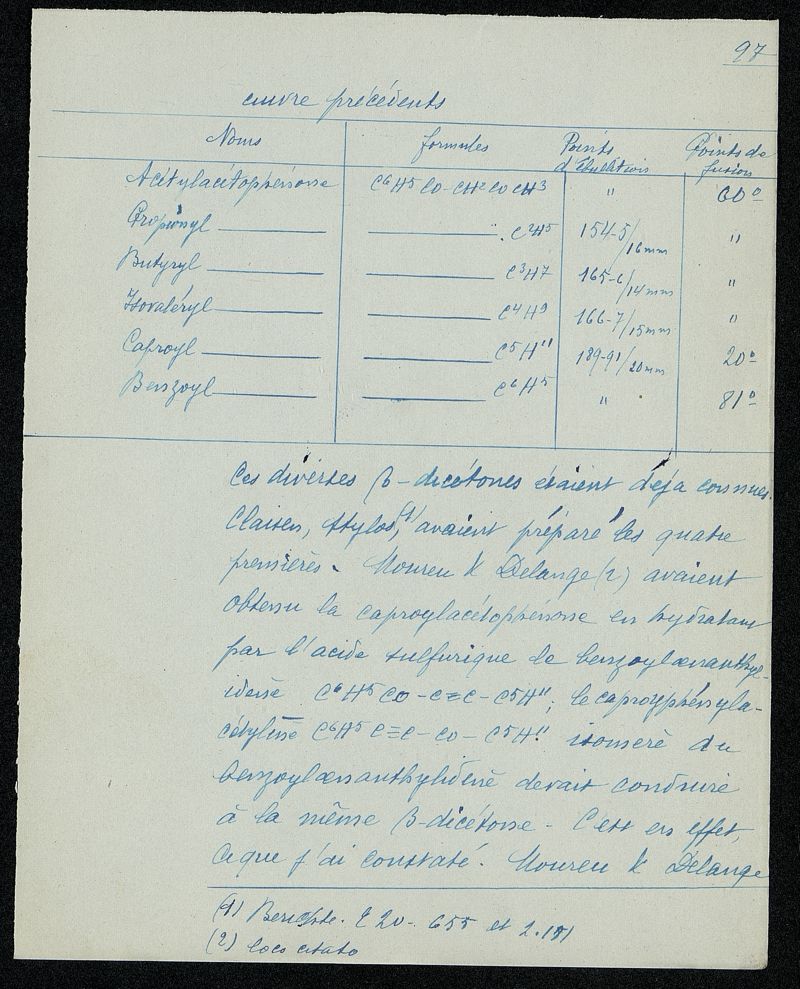 97
cuivre précédents
Noms formules Points d'Ebullition Points de fusion
Acétylacétophénone C⁶H⁵CO-CH²COCH³ " 60°
Propionyl ——— ——— C²H⁵ 154-5/16mm "
Butyryl ——— ——— C³H⁷ 165-6/14mm "
Isovaléryl ——— ——— C⁴H⁹ 166-7/15mm "
Caproyl ——— ——— C⁵H¹¹ 189-91/20mm 20°
Benzoyl ——— ——— C⁶H⁵ " 81°
Ces diverses β-dicétones étaient déjà connues.
Claisen, Stylos,(1) avaient préparé les quatre
premières. Moureu & Delange (2) avaient
obtenu la caproylacétophénone en hydratant
par l'acide sulfurique le benzoylœnanthyl-
idène C⁶H⁵CO-C≡C-C⁵H¹¹; le caproylphényla-
cétylène C⁶H⁵C≡C-CO-C⁵H¹¹ isomère du
benzoylœnanthylidène devait conduire
à la même β-dicétone. C'est en effet,
ce que j'ai constaté. Moureu & Delange
(1) Berichte. t 20. 655 et 2.181
(2) loco citato